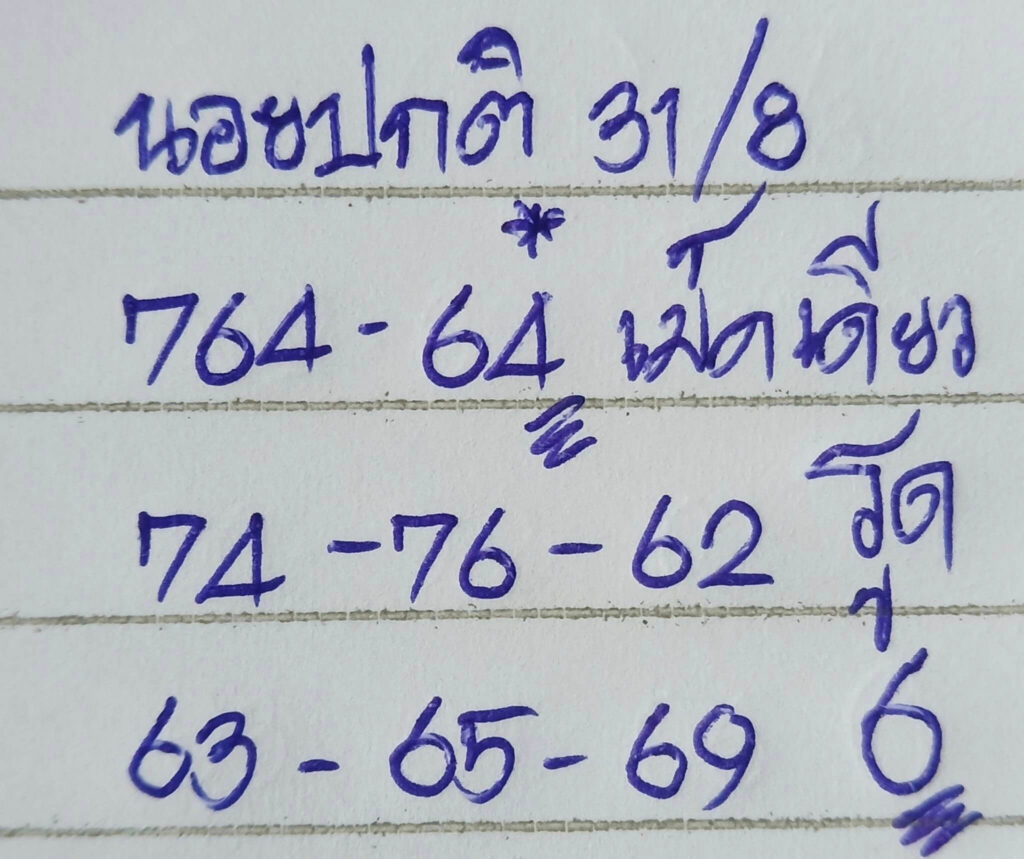 นอยปกติ 31/8
*
764 - 64 เม็ดเดียว
74 - 76 - 62 รูด
63 - 65 - 69 6